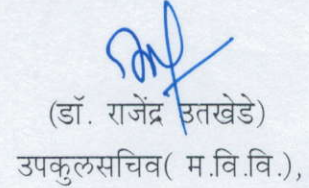 (डॉ. राजेंद्र उतखेडे)
उपकुलसचिव( म.वि.वि.),